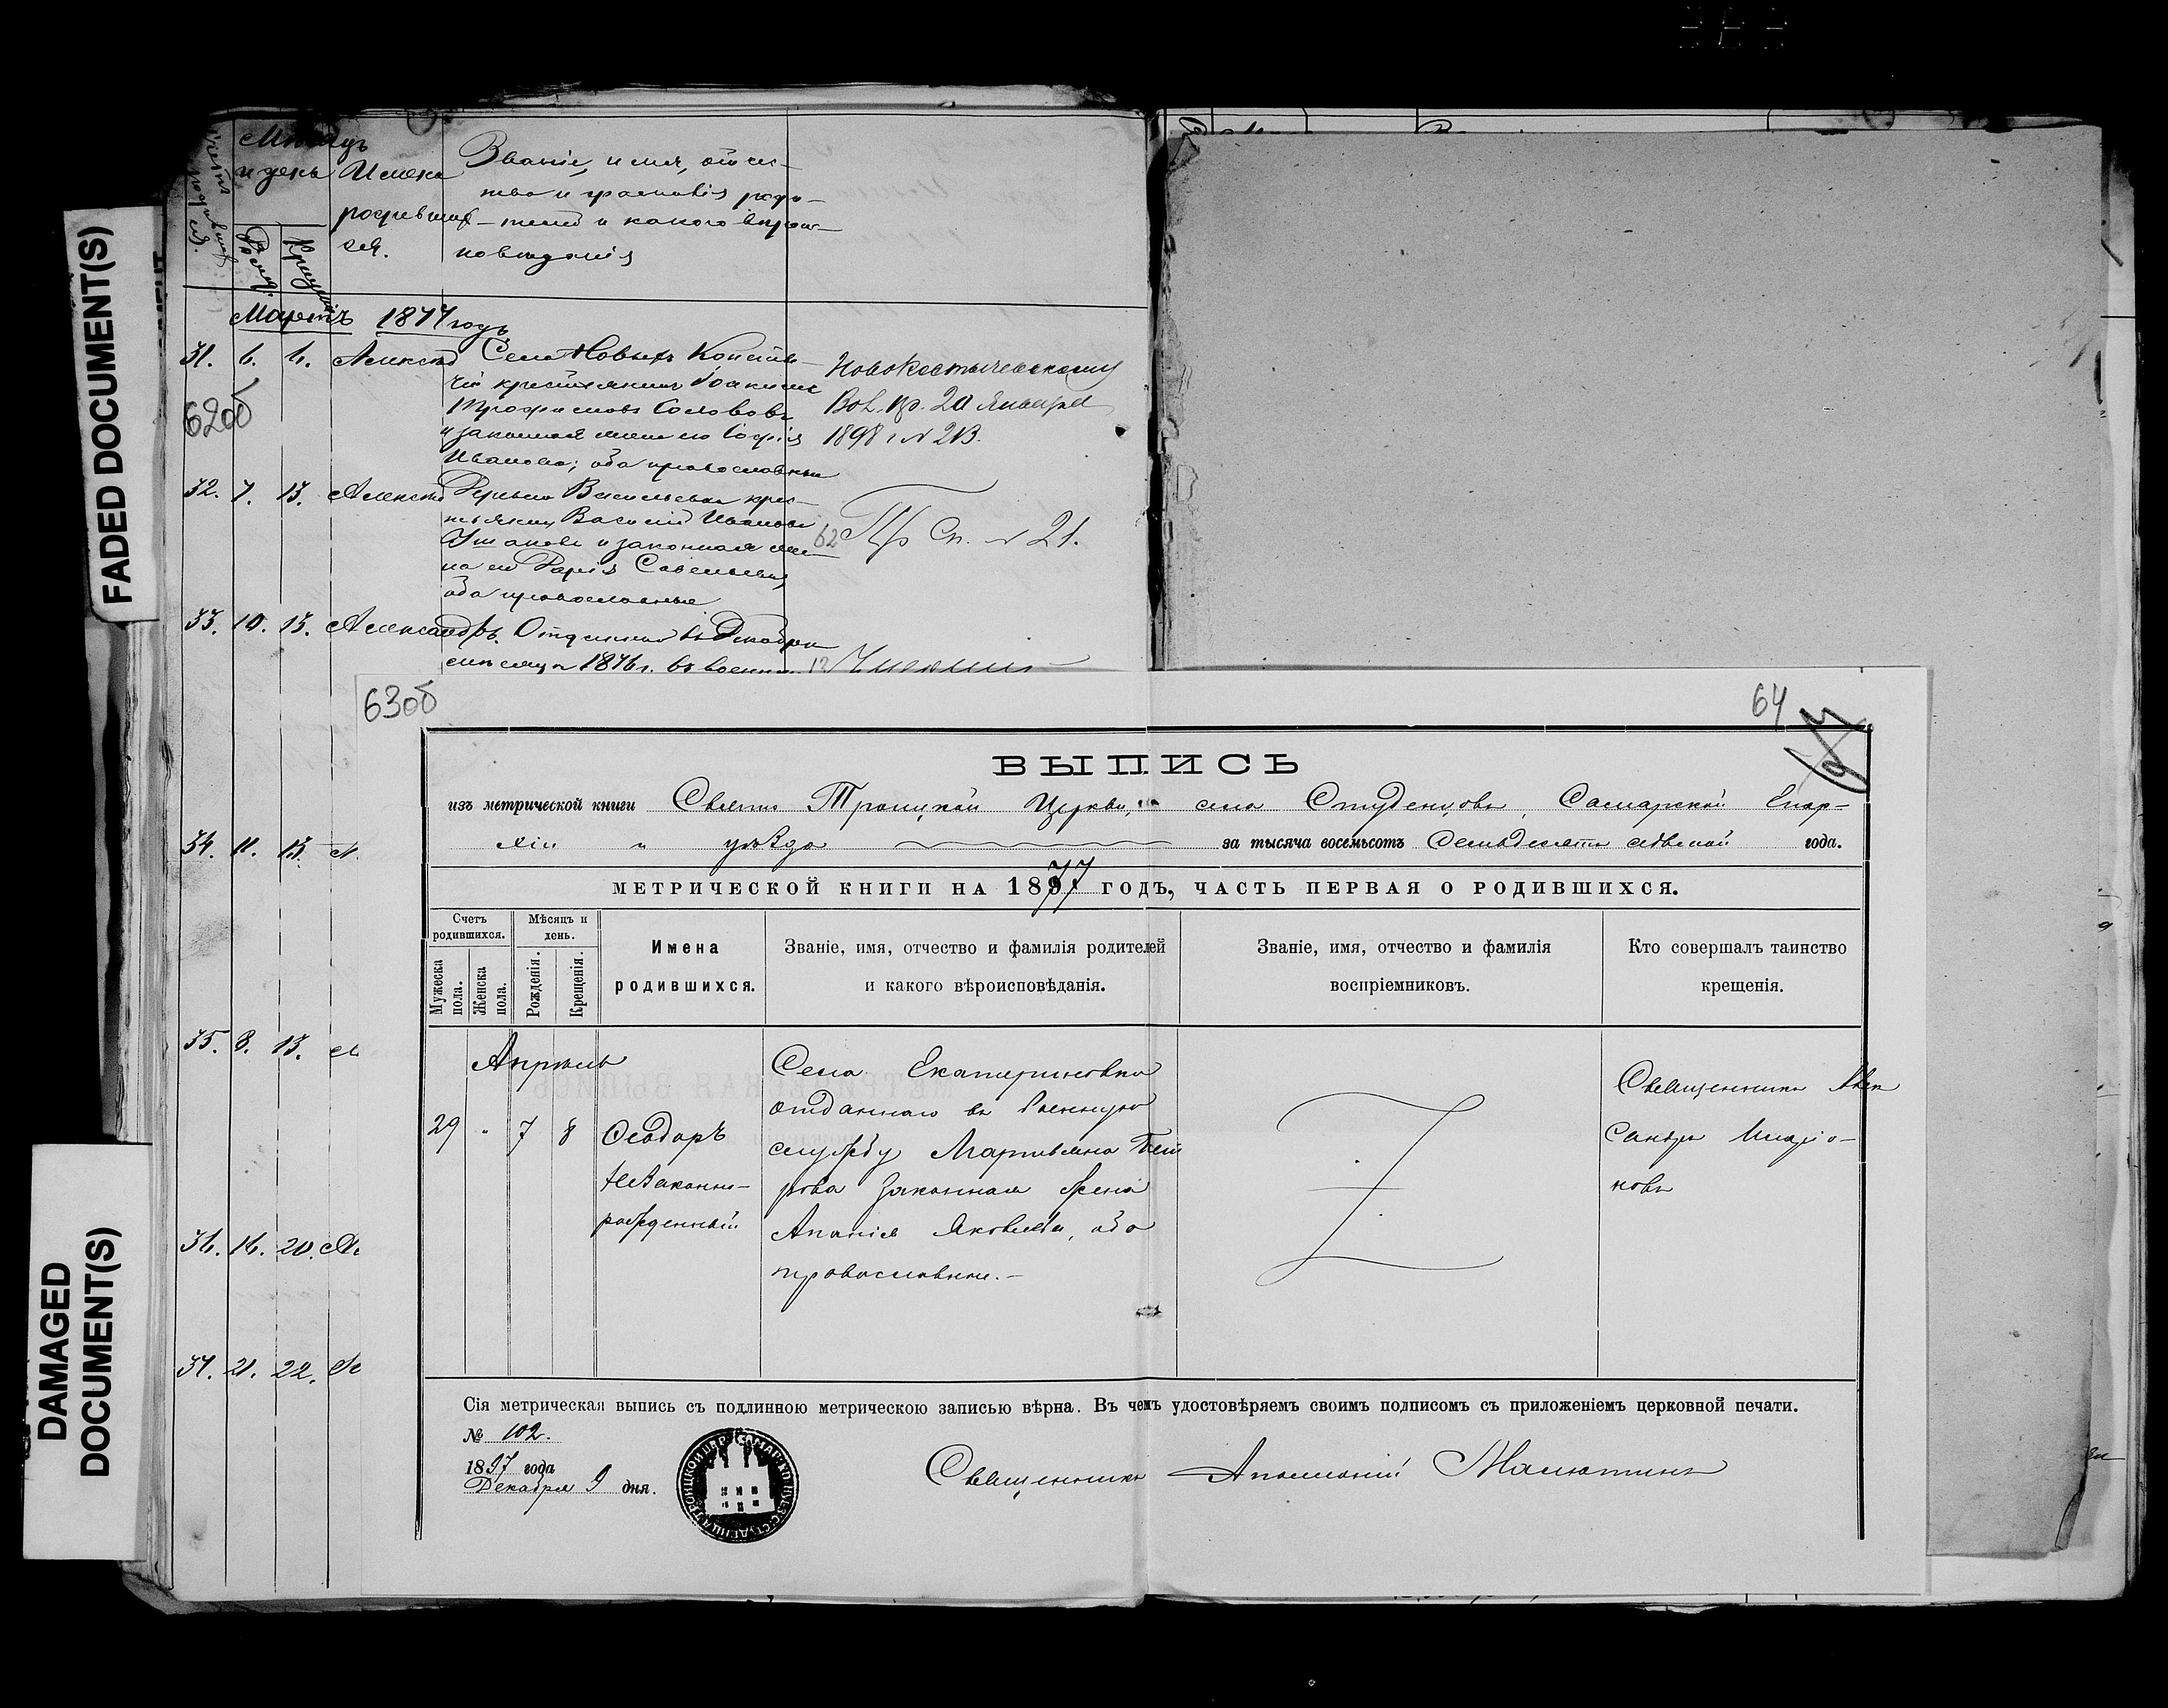 FADED DOCUMENT(S)
DAMAGED
DOCUMENT(S)
Мѣсяцъ
и день
Имена
родившихся.
Званіе, имя, отче-
ство и фамилія роди-
телей и какого вѣрои-
повѣданія
Мартъ 1877 годъ
31. 6. 6. Алексѣй
Села Новыхъ Косты-
чей крестьянинъ Іоакимъ
Трофимовъ Солововъ
и законная жена его Софія
Иванова; оба православные
Новокостычевскому
Вол. пр. 20 Января
1898 г. № 213.
62об
32. 7. 13. Алексѣй
Васильевки крес-
тьянинъ Василій Ивановъ
и законная же-
на его Дарія Савельева,
оба православные
62 Пр Сп. № 21.
33. 10. 13. Александръ.
Отданный въ Декабрѣ
мѣсяцѣ 1876 г. въ военн.
34. 11. 13.
35. 8. 13.
36. 16. 20.
37. 21. 22.
63об
64
ВЫПИСЬ
изъ метрической книги Свято Троицкой Церкви, села Студенцовъ, Самарской Епар-
хіи и уѣзда за тысяча восемьсотъ семьдесятъ седьмой года.
МЕТРИЧЕСКОЙ КНИГИ НА 1877 ГОДЪ, ЧАСТЬ ПЕРВАЯ О РОДИВШИХСЯ.
Счетъ
родившихся.
Мужеска
пола.
Женска
пола.
Мѣсяцъ и
день.
Рожденія.
Крещенія.
Имена
родившихся.
Званіе, имя, отчество и фамилія родителей
и какого вѣроисповѣданія.
Званіе, имя, отчество и фамилія
воспріемниковъ.
Кто совершалъ таинство
крещенія.
Апрѣль
29 " 7 8
Ѳеодоръ
незаконно-
рожденный
Села Екатериновки
отданнаго въ военную
службу Мартиміана Пет
рова законная жена
Яковлева, оба
православные.
Священникъ Алек
сандръ
Сія метрическая выпись съ подлинною метрическою записью вѣрна. Въ чемъ удостовѣряемъ своимъ подписомъ съ приложеніемъ церковной печати.
№ 102.
1897 года
Декабря 9 дня.
Священникъ Аполлоній Малютинъ